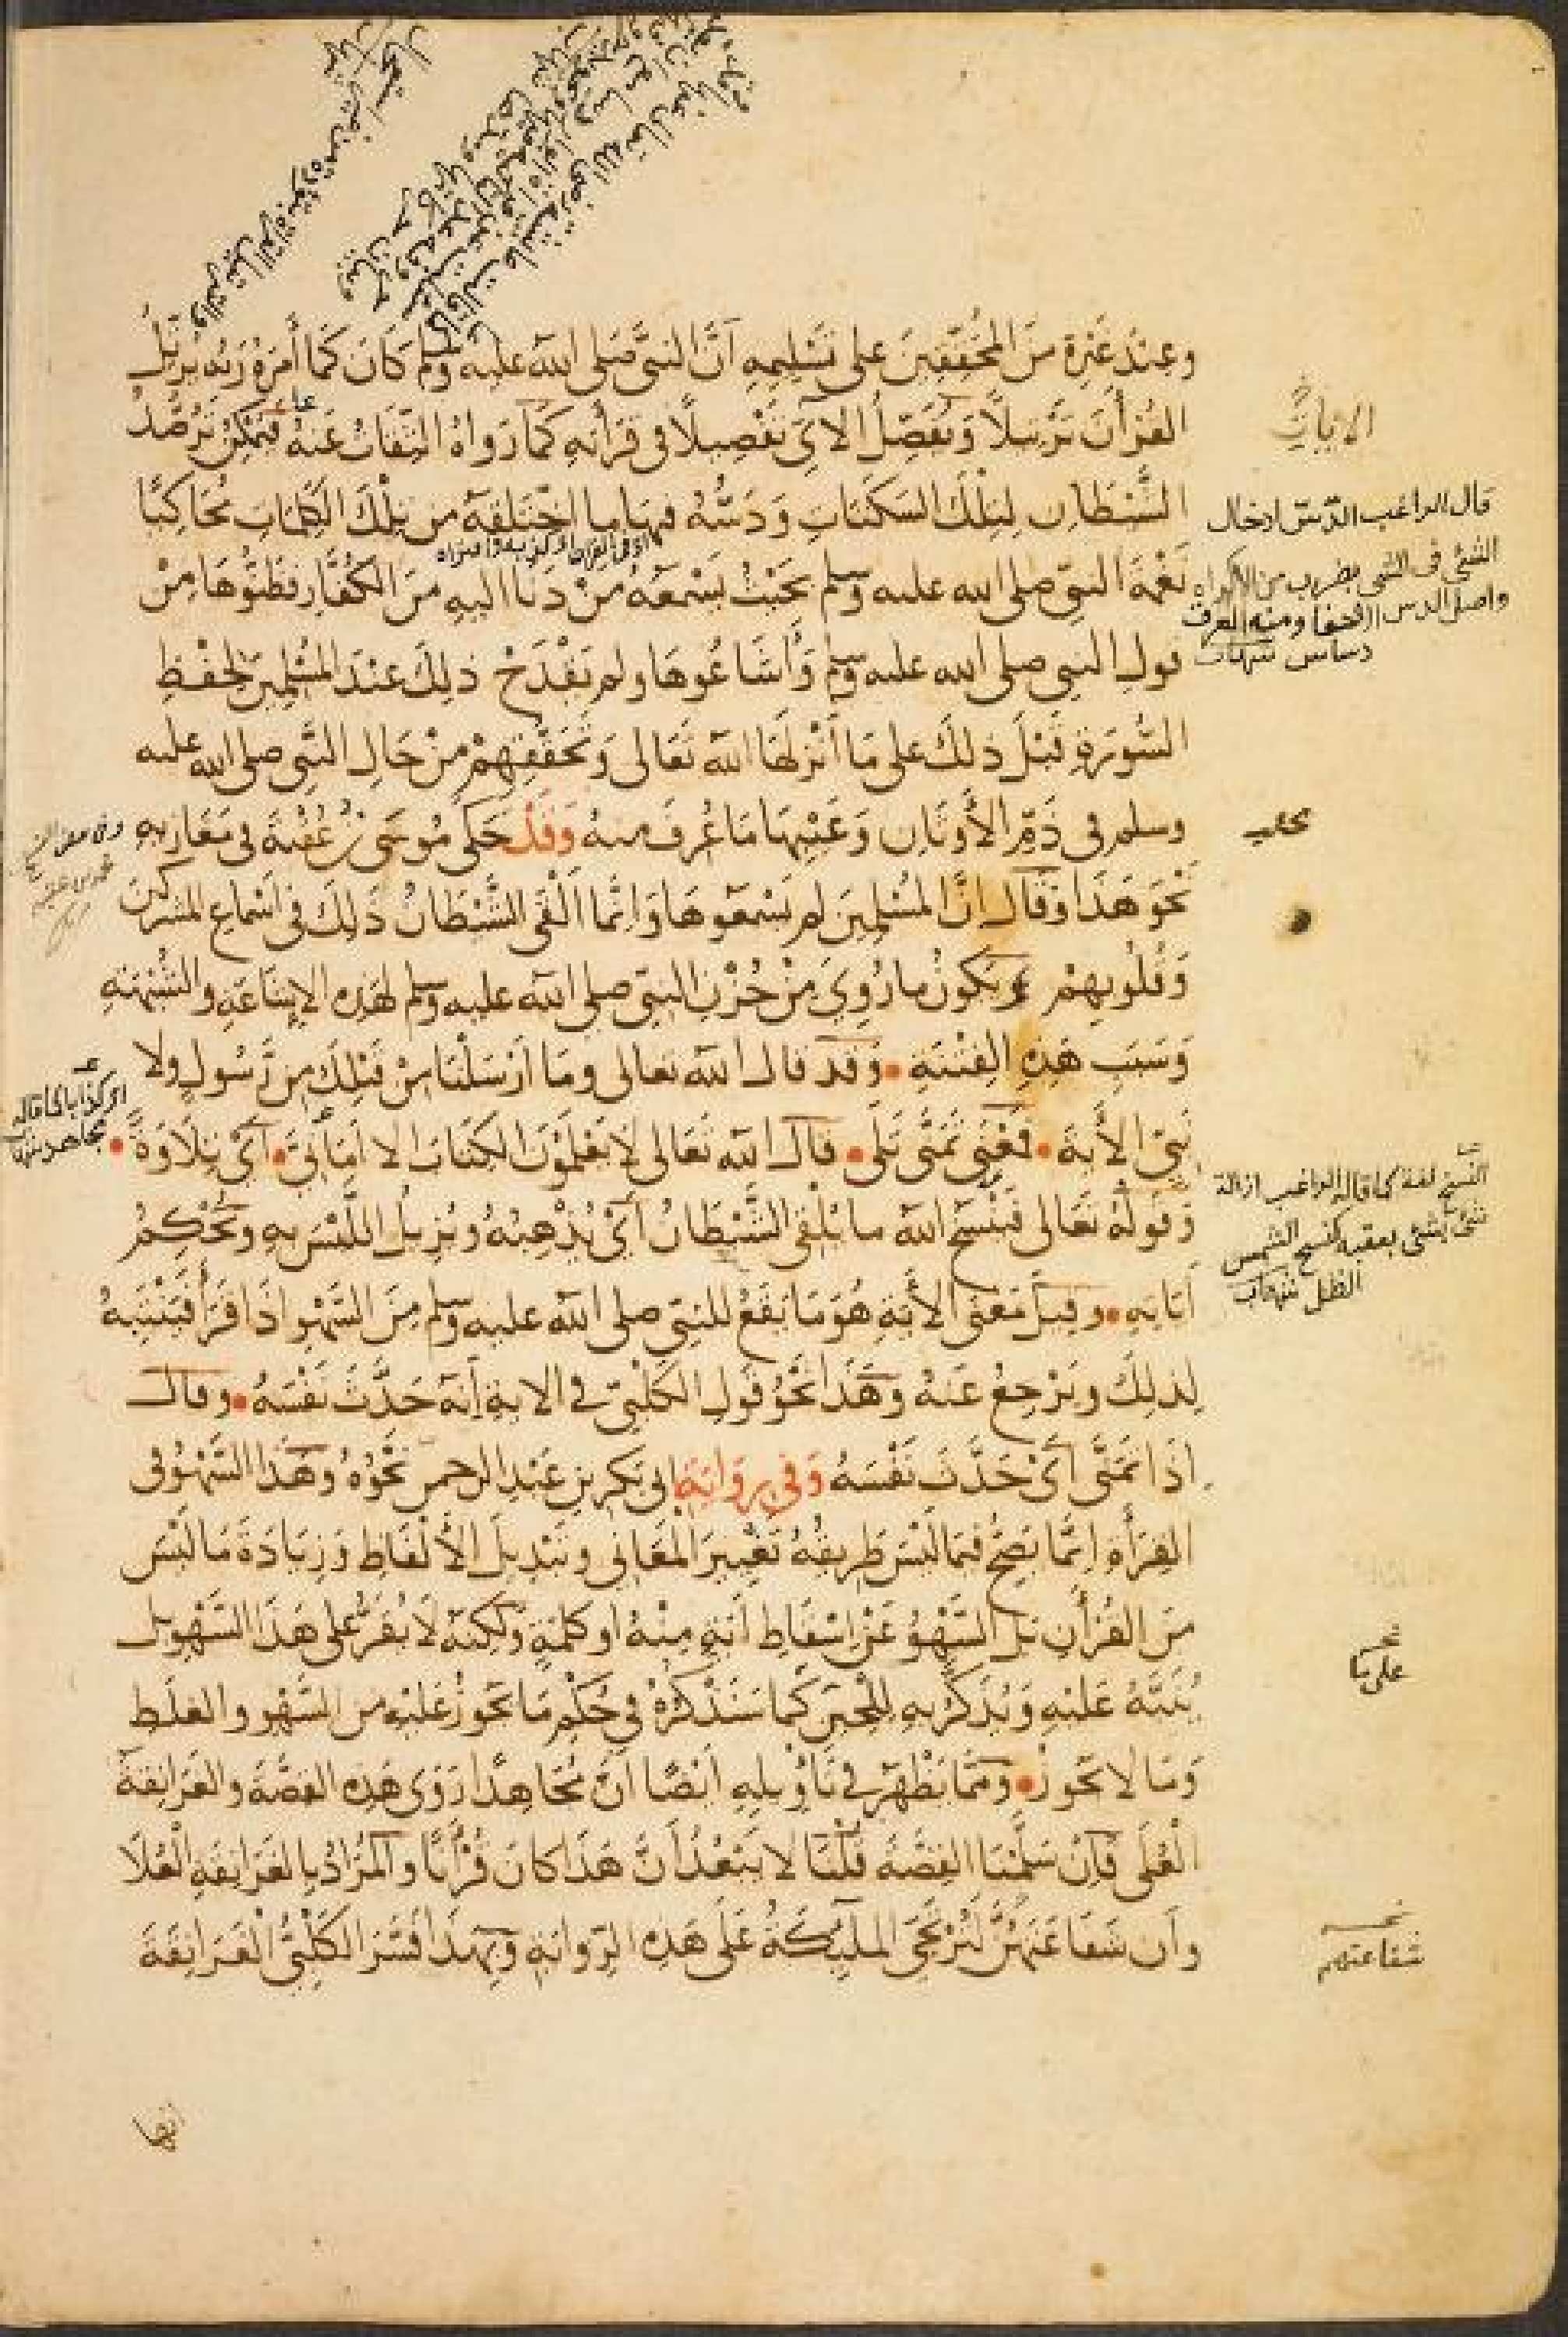 وَعِنْدَ غَيْرِهِ مِنَ المُحَقِّقِينَ على تَسْلِيمِهِ أنَّ النبىَّ صَلى الله عليه وسلم كَانَ كَمَا أمَرَهُ رَبُّه يُرَتِّلُ
القُرْأنَ تَرْتِيلاً وَيُفَصِّلُ الاىَ تَفْصِيلاً فى قِرَأتِهِ كَمَا رَوَاهُ الثِّقَاتُ عَنهُ فَيُمْكِنُ تَرَصُّدُ
الشَّيْطَانِ لِتِلْكَ السَكَتَاتِ وَدَسُّهُ فيهَا ما اخْتَلَقَهُ مِن تِلْكَ الكَلِمَاتِ مُحَاكِيًا
نَغْمَةَ النبىّ صلى الله عليه وسلم بِحَيْثُ يَسْمَعُهُ مَنْ دَنَا اليهِ مِنَ الكُفَّارِ فَظَنُّوهَا مِنْ
قولِ النبى صلى الله عليه وسلم وَأشَاعُوهَا ولم يَقْدَحْ ذلِكَ عِنْدَ المُسْلِمِينَ لِحفْظِ
السُّورَةِ قَبْلَ ذلِكَ على مَا أنْزلَهَا الله تَعَالى وَتَحَقُّقِهِمْ مِنْ حَالِ النَّبى صلى الله عليه
وسلم فى ذَمِّ الأَوثَانِ وَعَيْبِهَا مَا عُرِفَ منهُ وَقَدْ حَكَى مُوسَى بْنُ عُقْبَةَ فى مَغَازِيهِ
نَحْوَ هَذَا وَقَالَ إنَّ المُسْلِمِينَ لم يَسْمَعُوهَا وَإنَّمَا ألْقَى الشَّيْطَانُ ذَلِكَ فى أسْمَاعِ المشركين
وَقُلُوبِهِمْ وَيَكُونُ ما رُوِىَ مِنْ حُزْنِ النبىّ صلى الله عليه وسلم لهَذِهِ الإشَاعَةِ والشُّبْهَةِ
وَسَبَبِ هَذِهِ الفِتْنَةِ • وَقَد قالَ الله تعالى وَمَا أرْسَلْنَا مِنْ قَبْلِكَ مِن رَسُولٍ ولا
نَبِىّ الأيةَ • فَمعْنى تَمَنَّى تَلَى • قالَ الله تَعَالى لا يَعْلَمُونَ الكِتَابَ الا أمَانِىَّ • أىْ تِلَاوَةً •
وَقولُهُ تَعَالى فَيَنْسَخُ الله ما يُلْقِى الشَّيْطَانُ أىْ يُذْهِبُهُ وَيُزِيلُ اللَّبْسَ بِهِ وَيُحْكِمُ
أيَاتِهِ • وقيلَ مَعْنَى الأيةِ هُوَ مَا يَقَعُ للنبىّ صلى الله عليه وسلم مِنَ السَّهْوِ اذَا قَرَأَ فَيَنْتَبِهُ
لِذلِكَ وَيَرْجِعُ عَنهُ وهَذَا نَحْوُ قولِ الكَلْبِىّ فى الايةِ أنّهُ حَدَّثَ نَفْسَهُ • وقالَ
اذَا تَمَنَّى أىْ حَدَّثَ نَفْسَهُ وَفى رِوَايَةِ ابى بَكرِ بنِ عَبْدِ الرحمنِ نَحْوُهُ وهَذَا السَّهْوُ فى
القِرَأةِ انَّمَا يَصِحُّ فيمَا لَيْسَ طَرِيقُهُ تَغْيِيرَ المَعَانِى وتَبْدِيلَ الأَلْفَاظِ وَزِيَادَةَ مَا لَيْسَ
مِنَ القُرْأنِ بَلِ السَّهْوُ عَنْ إسْقَاطِ أيَةٍ مِنْهُ اَو كَلِمَةٍ وَلَكِنّهُ لَا يُقَرُّ على هَذَا السَّهْوِ بل
يُنَبَّهُ عَليْهِ وَيُذَكَّرُ بِهِ لِلْحِينِ كَمَا سَنَذْكُرُهُ فى حُكْمِ مَا يَجُوزُ عَلَيْهِ مِن السَّهْوِ والغَلَطِ
وَمَا لا يَجُوزُ • وَمِمَّا يَظْهَرُ فى تَأوِيلِهِ أيْضًا أنَّ مُجَاهِدًا رَوَى هَذِهِ القِصَّةَ وَالغَرَانِقَةَ
العُلَى فَإنْ سَلَّمْنَا القِصَّةَ قُلْنَا لا يَبْعُدُ أنَّ هَذَا كانَ قُرْأنًا والمُرَادُ بِالغَرَانِقَةِ العُلَا
وَأن شَفَاعَتَهُنَّ لَتُرْتَجَى الملئِكَةُ عَلَى هَذِهِ الرِّوَايَةِ وَبِهَذَا فَسَّرَ الكَلْبِىُّ الغَرَانِقَةَ
الايات
قال الراغب الدّسّ ادخال
الشئ فى الشئ بضرب من الاكراه
واصل الدس الاخفا ومنه العرق
دساس شهاب
النسخ لغة كما قاله الراغب ازالة
شئ بشئ يعقبه كنسخ الشمس
الظل شهاب
على ما
شفاعتهم
وفى بعض النسخ
محمد بن عقبه
او كذابا كما قاله
مجاهد شهاب
انها